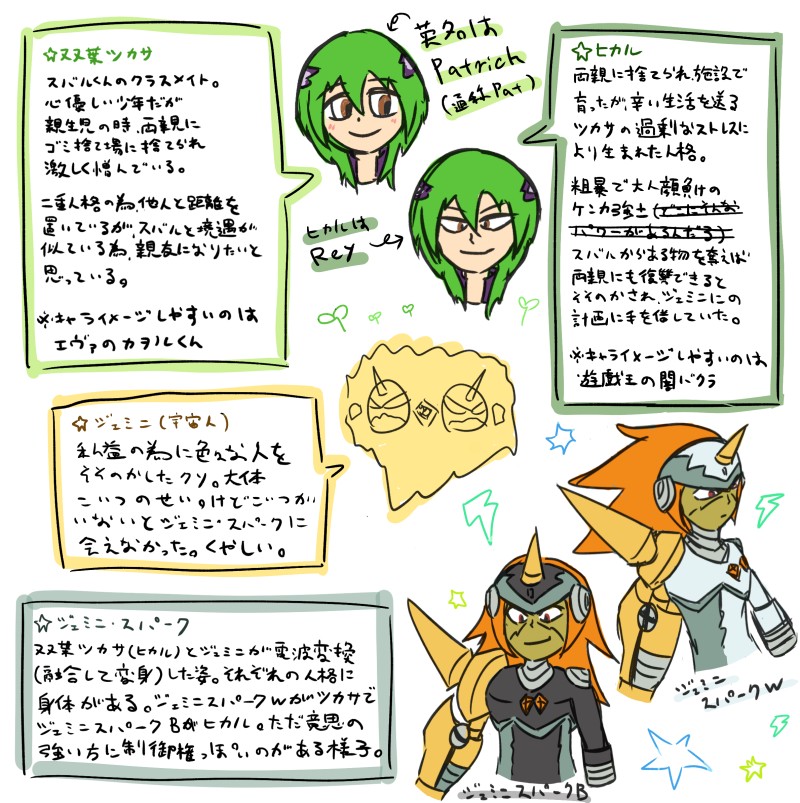 ☆双葉ツカサ
スバルくんのクラスメイト。
心優しい少年だが
親生児の時、両親に
ゴミ捨て場に捨てられ
激しく憎んでいる。
二重人格の為、他人と距離を
置いているが、スバルと境遇が
似ている為、親友になりたいと
思っている。
※キャライメージしやすいのは
エヴァのカヲルくん
英名は
Patrich
(通称Pat)
ヒカルは
Rey
☆ヒカル
両親に捨てられ、施設で
育ったが、辛い生活を送る
ツカサの過剰なストレスに
より生まれた人格。
粗暴で大人顔負けの
ケンカ強士(どこにそんな
パワーがあるんだろ)
スバルからある物を奪えば
両親にも復讐できると
そそのかされ、ジェミニの
計画に手を貸していた。
※キャライメージしやすいのは
遊戯王の闇バクラ
☆ジェミニ(宇宙人)
私益の為に色んな人を
そそのかしたクソ。大体
こいつのせい。けどこいつが
いないとジェミニ・スパークに
会えなかった。くやしい。
☆ジェミニ・スパーク
双葉ツカサ(ヒカル)とジェミニが電波変換
(融合して変身)した姿。それぞれの人格に
身体がある。ジェミニスパークWがツカサで
ジェミニスパークBがヒカル。ただ意思の
強い方に制御権っぽいのがある様子。
ジェミニ
スパークW
ジェミニスパークB